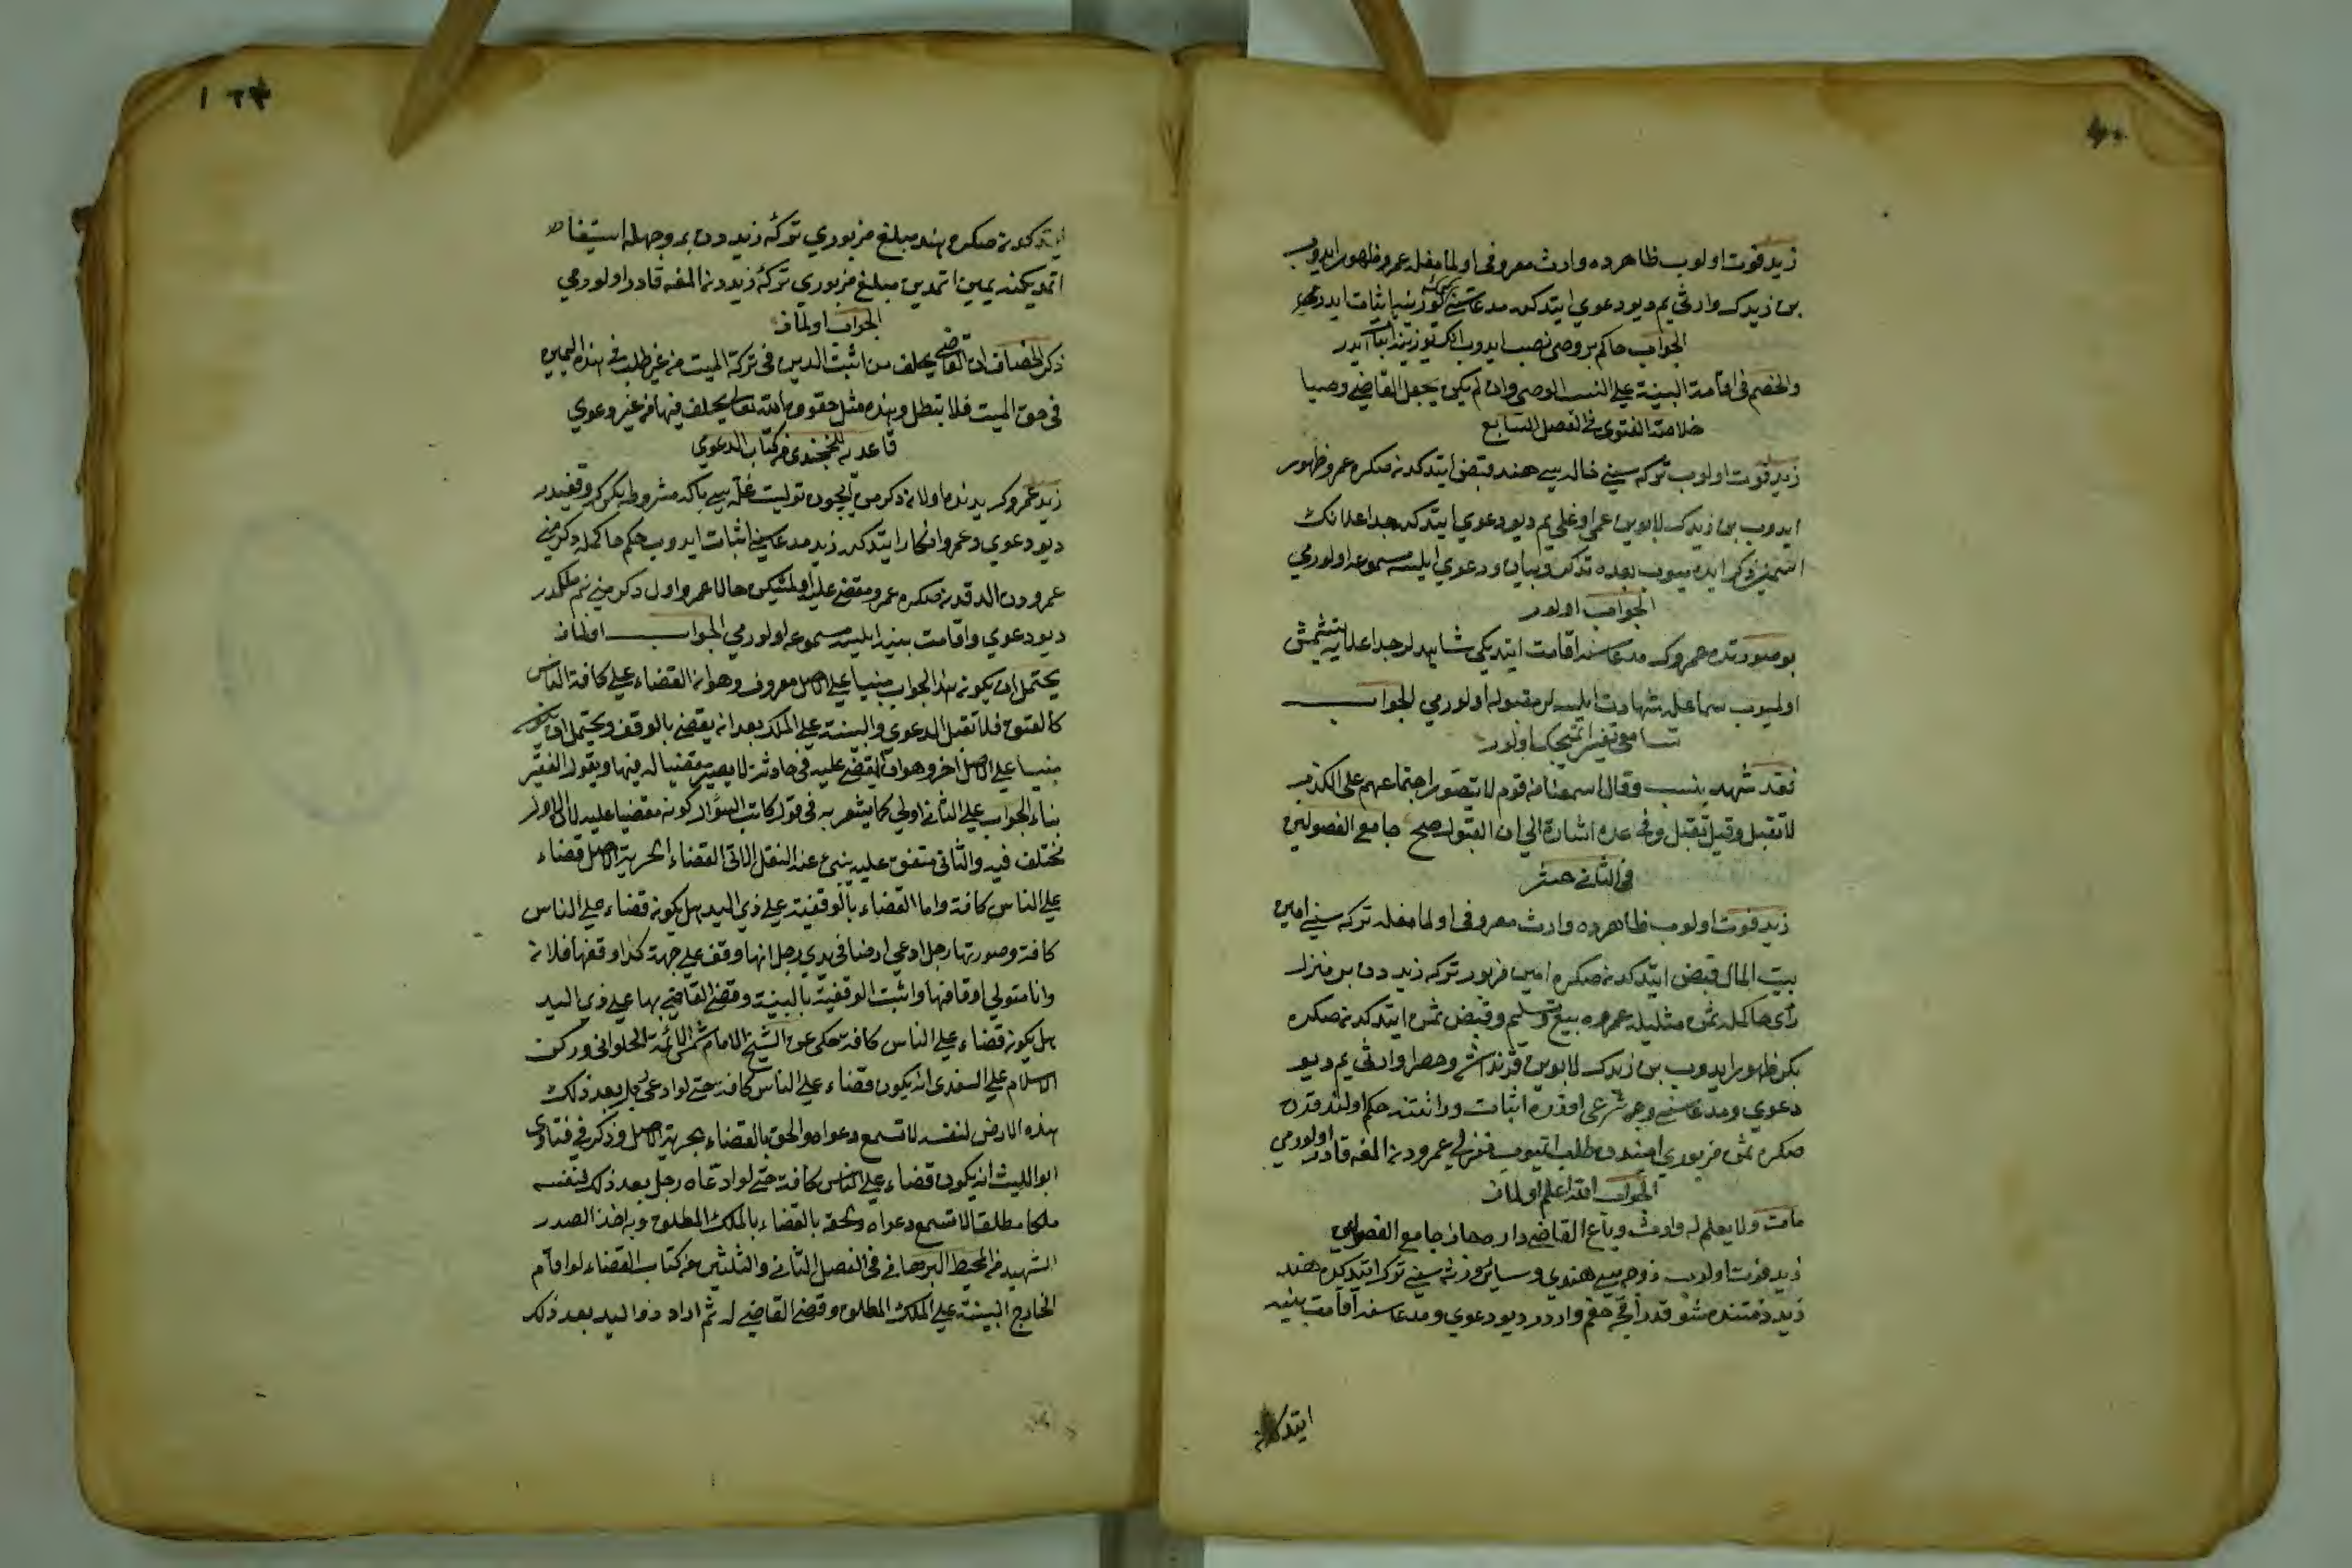 زيد فوت اولوب ظاهرده وارث معروفى اولمامغله عمرو ظهور ايدوب
بن زيدك وارثى يم ديو دعوي ايتدكده مدعاسنى كيمك اوزرينه اثبات ايدر
الجواب حاكم بر وصى نصب ايدوب انك اوزرينه اثبات ايدر
والخصم فى اقامة البينة على النسب الوصى وان لم يكن يجعل القاضى وصيا
خلاصة الفتوى فى الفصل السابع
زيد فوت اولوب تركه سينى خاله سى هند قبض ايتدكدنصكره عمرو ظهور
ايدوب بن زيدك لابوين عمى اوغلى يم ديو دعوي ايتدكده جد اعلانك
اسمنى ذكر ايده ميوب بعده تذكر وبيان ودعوي ايلسه مسموعه اولورمي
الجواب اولور
بو صورتده عمروك مدعاسنه اقامت ايتديكى شاهدلر جد اعلايه يتشمش
اولميوب سماعله شهادت ايلسه لر مقبوله اولورمي الجواب
تسامعى تفسير اتميجك اولور
فقد شهد بنسب وقال اسمعنا من قوم لا يتصور اجتماعهم على الكذب
لا تقبل وقيل تقبل وفى عده اشارة الى ان القبول اصح جامع الفصولين
فى الثانى عشر
زيد فوت اولوب ظاهرده وارث معروفى اولمامغله تركه سينى امين
بيت المال قبض ايتدكدنصكره امين مزبور تركه زيددن بر منزل
رأى حاكمله ثمن مثليله عمروه بيع وتسليم وقبض ثمن ايتدكدنصكره
بكر ظهور ايدوب بن زيدك لابوين قرنداشى وحصرا وارثى يم ديو
دعوي ومدعاسنى وجه شرعى اوزره اثبات ووراثتنه حكم اولندقدن
صكره ثمن مزبوري اميندن طلب اتميوب منزلى عمرودن المغه قادر اولورمي
الجواب الله اعلم اولماز
مات ولا يعلم له وارث وباع القاضى داره جاز جامع الفصولين
زيد فوت اولوب زوجه سى هندي وسائر ورثه سينى ترك ايتدكده هند
زيد ذمتنده شو قدر اقچه حقم واردر ديو دعوي ومدعاسنه اقامت بينه
ايتدكدنصكره
ايتدكدنصكره هند مبلغ مزبوري تركه زيددن بر وجهله استيفا
اتمديكنه يمين اتمدين مبلغ مزبوري تركه زيددن المغه قادر اولورمي
الجواب اولماز
ذكر الخصاف ان القاضى يحلف من اثبت الدين فى تركة الميت من غير طلب فى هذه اليمين
فى حق الميت فلا تبطل وهذه مثل حقوق الله تعالى يحلف فيها من غير دعوي
قاعديه للخجندى من كتاب الدعوي
زيد عمروك يدنده اولان دكرمن ايچون توليت غله سى بكا مشروطه بكرك وقفيدر
ديو دعوي وعمرو انكار ايتدكده زيد مدعاسنى اثبات ايدوب حكم حاكمله دكرمنى
عمرودن الدقدنصكره عمرو مقضى عليه اولمشيكن حالا عمرو اول دكرمنى نم ملكمدر
ديو دعوي واقامت بينه ايلسه مسموعه اولورمي الجواب اولماز
يحتمل ان يكون هذا الجواب مبنيا على اصل معروف وهو ان القضاء على كافة الناس
كالعتق فلا تقبل الدعوي والبينة على الملك بعد ان يقضى بالوقف ويحتمل ان يكون
مبنيا على اصل آخر وهو ان المقضى عليه فى حادثة لا يصير مقضيا له فيها ويقول الفقير
بناء الجواب على الثانى اولى كما يشعر به فى قول كاتب السؤال كونه مقضيا عليه لان الاول
مختلف فيه والثانى متفق عليه ينبئ عنه النقل الاتى القضاء بحرية الاصل قضاء
على الناس كافة واما القضاء بالوقفية على ذي اليد هل يكون قضاء على الناس
كافة وصورتها رجل ادعى ارضا فى يدي رجل انها وقف على جهة كذا وقفها فلان
وانا متولى اوقافها واثبت الوقفية بالبينة وقضى القاضى بها على ذي اليد
هل يكون قضاء على الناس كافة حكى عن الشيخ الامام شمس الائمة الحلوانى وركن
الاسلام على السغدى انه يكون قضاء على الناس كافة حتى لو ادعى رجل بعد ذلك
هذه الارض لنفسه لا تسمع دعواه والحق بالقضاء بحرية الاصل وذكر فى فتاوى
ابو الليث انه يكون قضاء على الناس كافة حتى لو ادعاه رجل بعد ذلك لنفسه
ملكا مطلقا لا تسمع دعواه ويلحقه بالقضاء بالملك المطلق وبه اخذ الصدر
الشهيد من المحيط البرهانى فى الفصل الثانى والثلثين من كتاب القضاء لو اقام
الخارج البينة على الملك المطلق وقضى القاضى له ثم اراد ذو اليد بعد ذلك